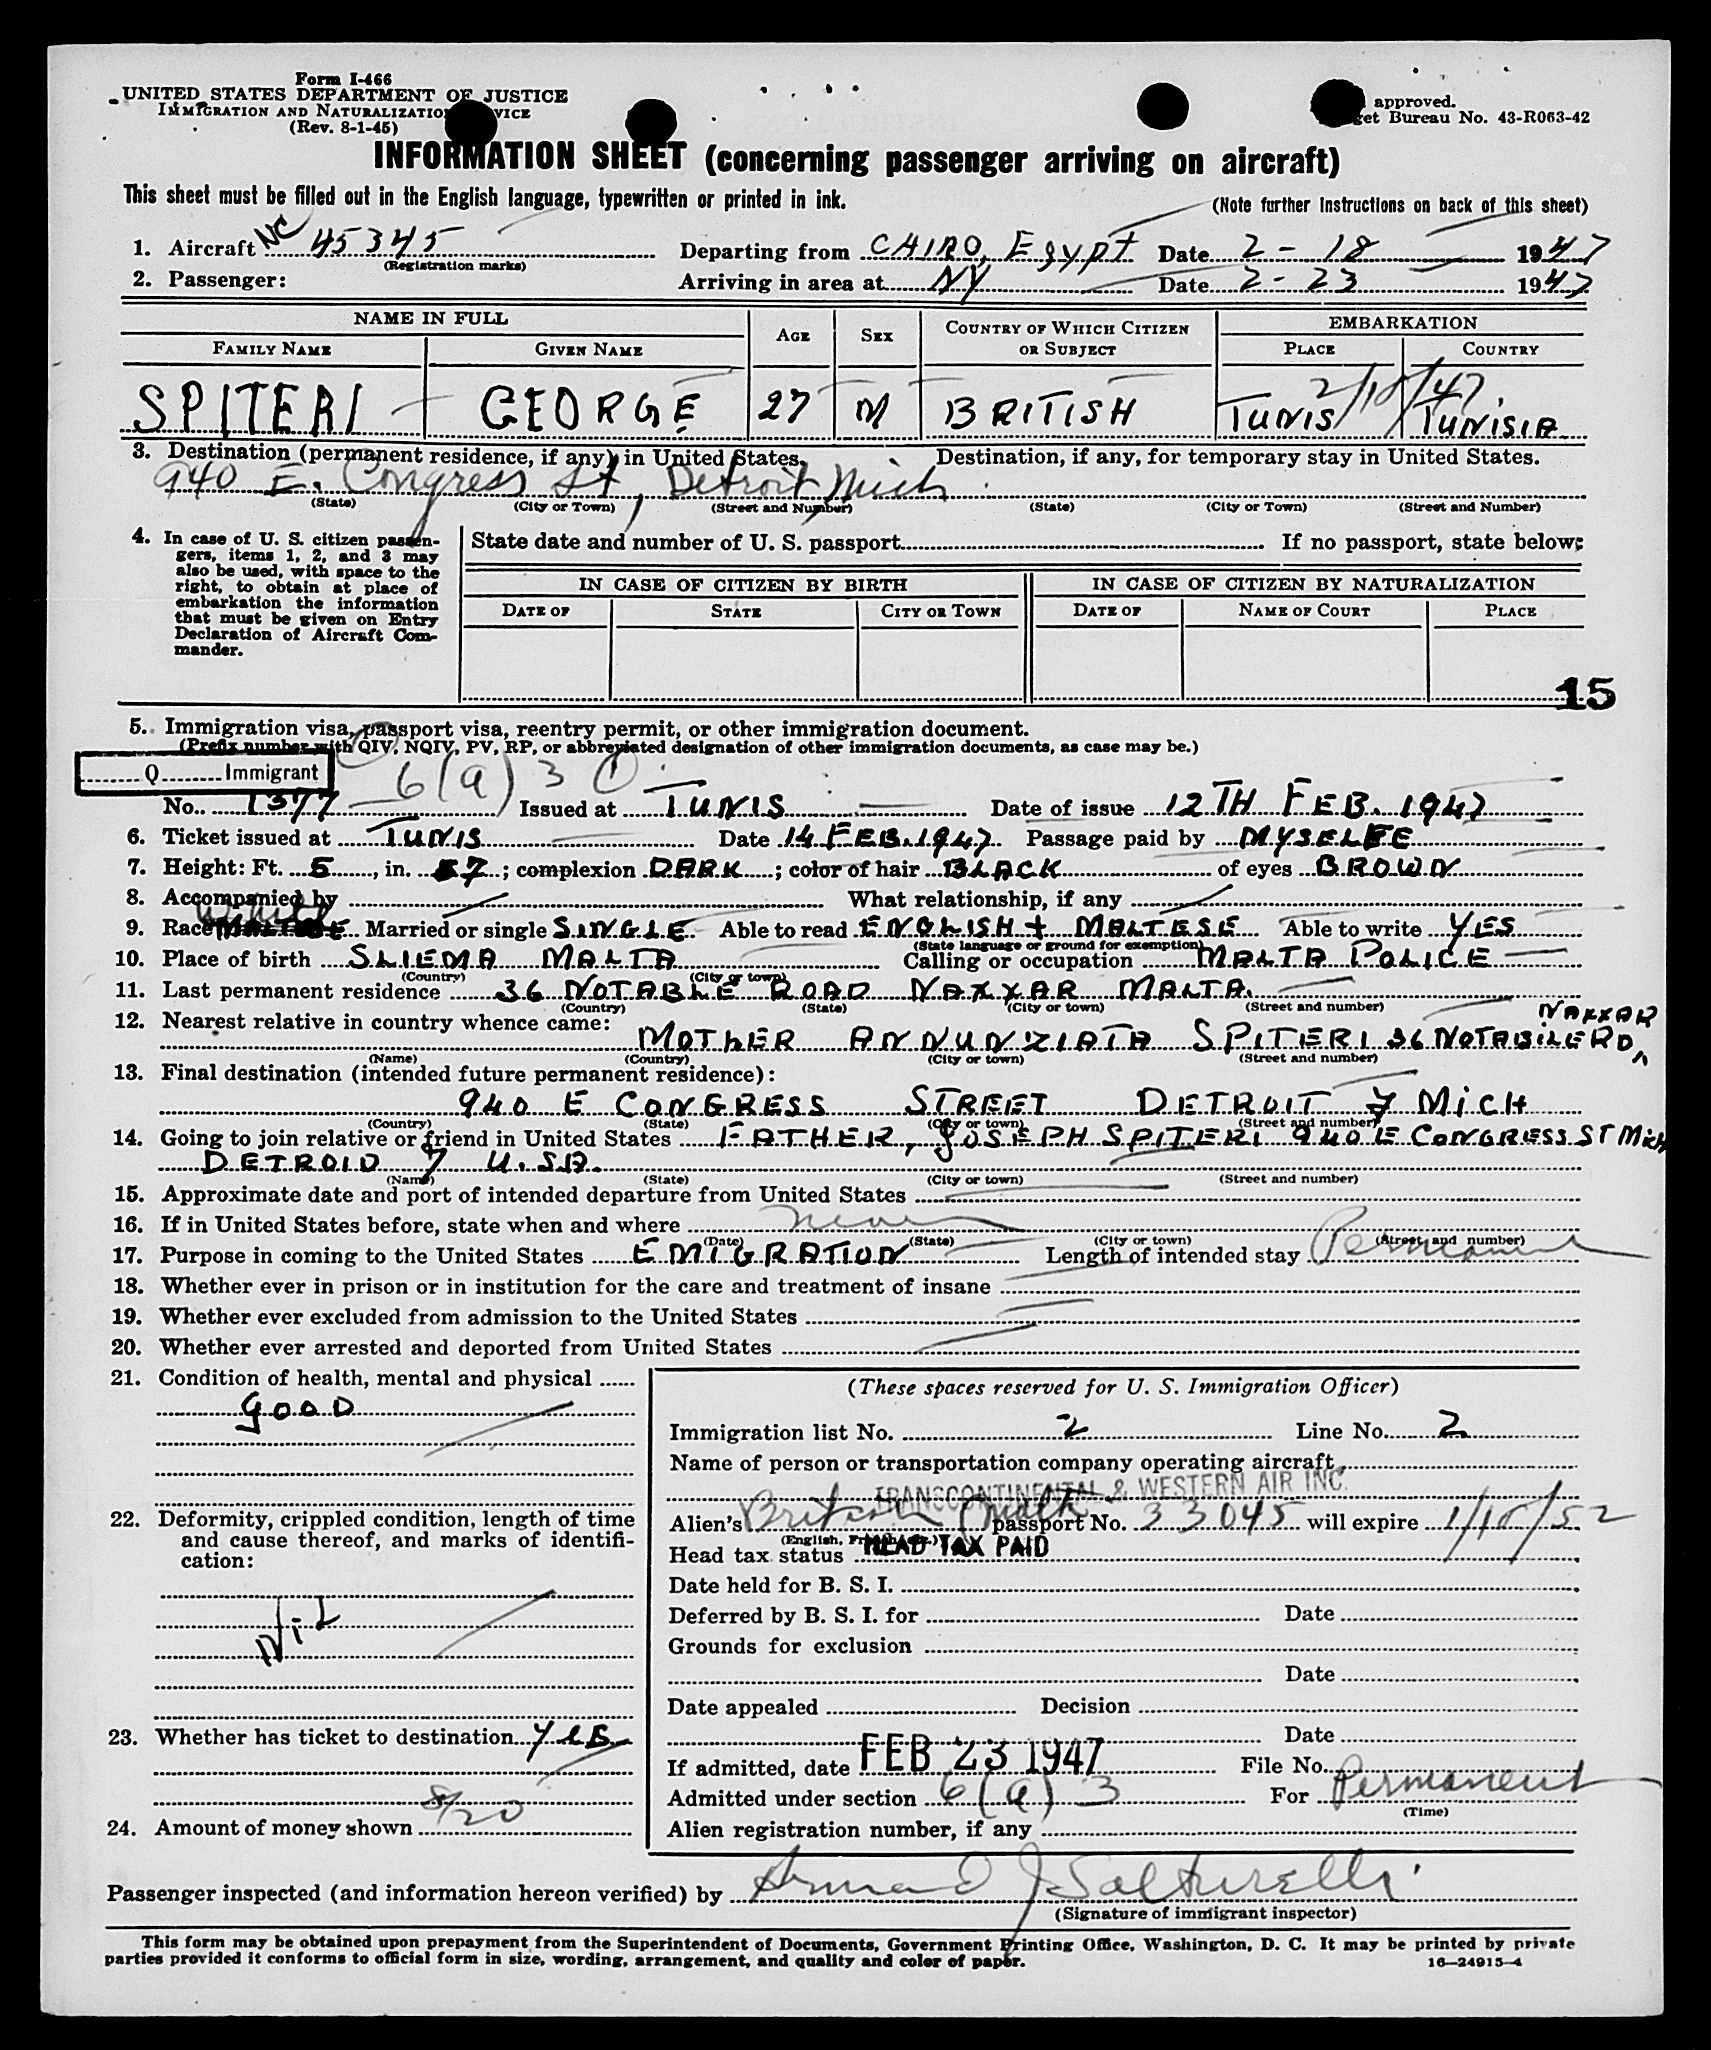 Form I-466
UNITED STATES DEPARTMENT OF JUSTICE
IMMIGRATION AND NATURALIZATION
(Rev. 8-1-45)
approved.
Bureau No. 43-R063-42
INFORMATION SHEET (concerning passenger arriving on aircraft)
This sheet must be filled out in the English language, typewritten or printed in ink.
(Note further instructions on back of this sheet)
1. Aircraft NC 45345 Departing from CAIRO, Egypt Date 2-18 1947
(Registration marks)
2. Passenger: Arriving in area at NY Date 2-23 1947
NAME IN FULL AGE SEX COUNTRY OF WHICH CITIZEN OR SUBJECT EMBARKATION
FAMILY NAME GIVEN NAME PLACE COUNTRY
SPITERI GEORGE 27 M BRITISH TUNIS TUNISIA
3. Destination (permanent residence, if any) in United States. Destination, if any, for temporary stay in United States.
940 E. Congress St, Detroit Mich
(State) (City or Town) (Street and Number) (State) (City or Town) (Street and Number)
4. In case of U. S. citizen passengers, items 1, 2, and 3 may also be used, with space to the right, to obtain at place of embarkation the information that must be given on Entry Declaration of Aircraft Commander.
State date and number of U. S. passport If no passport, state below:
IN CASE OF CITIZEN BY BIRTH IN CASE OF CITIZEN BY NATURALIZATION
DATE OF STATE CITY OR TOWN DATE OF NAME OF COURT PLACE
15
5. Immigration visa, passport visa, reentry permit, or other immigration document.
(Prefix number with QIV, NQIV, PV, RP, or abbreviated designation of other immigration documents, as case may be.)
Q Immigrant 6(a) 3
No. 1377 Issued at TUNIS Date of issue 12TH FEB. 1947
6. Ticket issued at TUNIS Date 14 FEB. 1947 Passage paid by MYSELFE
7. Height: Ft. 5, in. 7; complexion DARK; color of hair BLACK of eyes BROWN
8. Accompanied by What relationship, if any
9. Race White Married or single SINGLE Able to read ENGLISH + MALTESE Able to write YES
(State language or ground for exemption)
10. Place of birth SLIEMA MALTA Calling or occupation MALTA POLICE
(Country) (City or town)
11. Last permanent residence 36 NOTABLE ROAD NAXXAR MALTA.
(Country) (State) (City or town) (Street and number)
12. Nearest relative in country whence came: MOTHER ANNUNZIATA SPITERI 36 NOTABILE RD NAXXAR
(Name) (Country) (City or town) (Street and number)
13. Final destination (intended future permanent residence):
940 E CONGRESS STREET DETROIT 7 MICH
(Country) (State) (City or town) (Street and number)
14. Going to join relative or friend in United States FATHER, JOSEPH SPITERI 940 E CONGRESS ST Mich
DETROID 7 U.S.A.
(Name) (State) (City or town) (Street and number)
15. Approximate date and port of intended departure from United States
16. If in United States before, state when and where never
(Date) (State) (City or town) (Street and number)
17. Purpose in coming to the United States EMIGRATION Length of intended stay Permanent
18. Whether ever in prison or in institution for the care and treatment of insane
19. Whether ever excluded from admission to the United States
20. Whether ever arrested and deported from United States
21. Condition of health, mental and physical
GOOD
22. Deformity, crippled condition, length of time and cause thereof, and marks of identification:
NiL
23. Whether has ticket to destination yes
24. Amount of money shown
(These spaces reserved for U. S. Immigration Officer)
Immigration list No. 2 Line No. 2
Name of person or transportation company operating aircraft
TRANSCONTINENTAL & WESTERN AIR INC.
Alien's British Malta passport No. 33045 will expire 1/15/52
Head tax status HEAD TAX PAID
Date held for B. S. I.
Deferred by B. S. I. for Date
Grounds for exclusion
Date
Date appealed Decision
Date
If admitted, date FEB 23 1947 File No.
Admitted under section 6(a) 3 For Permanent
(Time)
Alien registration number, if any
Passenger inspected (and information hereon verified) by
(Signature of immigrant inspector)
This form may be obtained upon prepayment from the Superintendent of Documents, Government Printing Office, Washington, D. C. It may be printed by private
parties provided it conforms to official form in size, wording, arrangement, and quality and color of paper.
16—24915-4